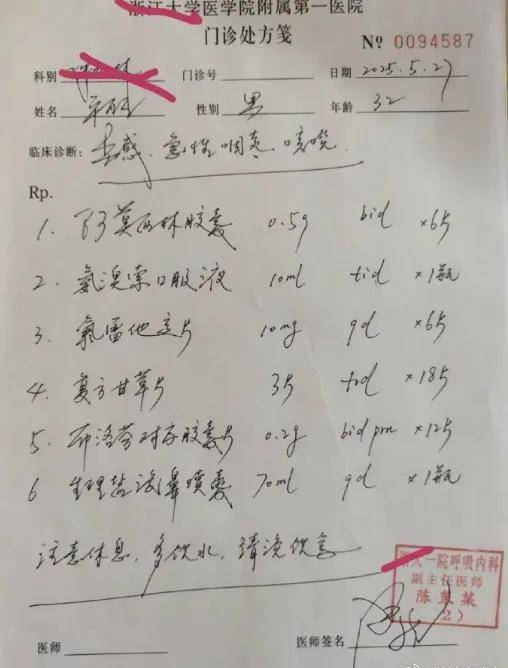 浙江大学医学院附属第一医院
门诊处方笺
№ 0094587
科别 门诊号 日期 2025.5.27
姓名 性别 男 年龄 32
临床诊断: 感、急性咽炎、咳嗽
Rp.
1. 阿莫西林胶囊 0.5g bid ×6片
2. 氨溴索口服液 10ml tid ×1瓶
3. 氯雷他定片 10mg qd ×6片
4. 复方甘草片 3片 tid ×18片
5. 布洛芬 胶囊片 0.2g bid prn ×12片
6 生理盐 鼻喷 70ml qd ×1瓶
注意休息,多饮水,清淡饮食
浙大一院呼吸内科
副主任医师
陈
2)
医师 医师签名